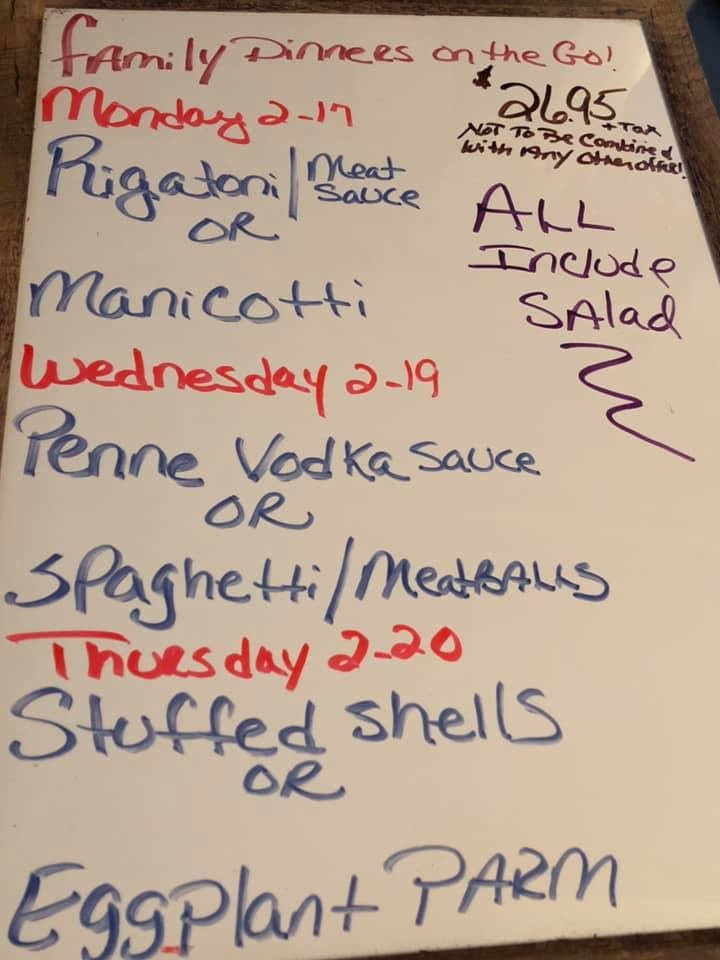 Family Dinners on the Go!
$26.95 + Tax
Not To Be Combined
With Any Other offer!
Monday 2-17
Rigatoni/Meat Sauce
OR
Manicotti
ALL
Include
SAlad
Wednesday 2-19
Penne Vodka Sauce
OR
Spaghetti/MeatBALLS
Thursday 2-20
Stuffed Shells
OR
Eggplant PARM